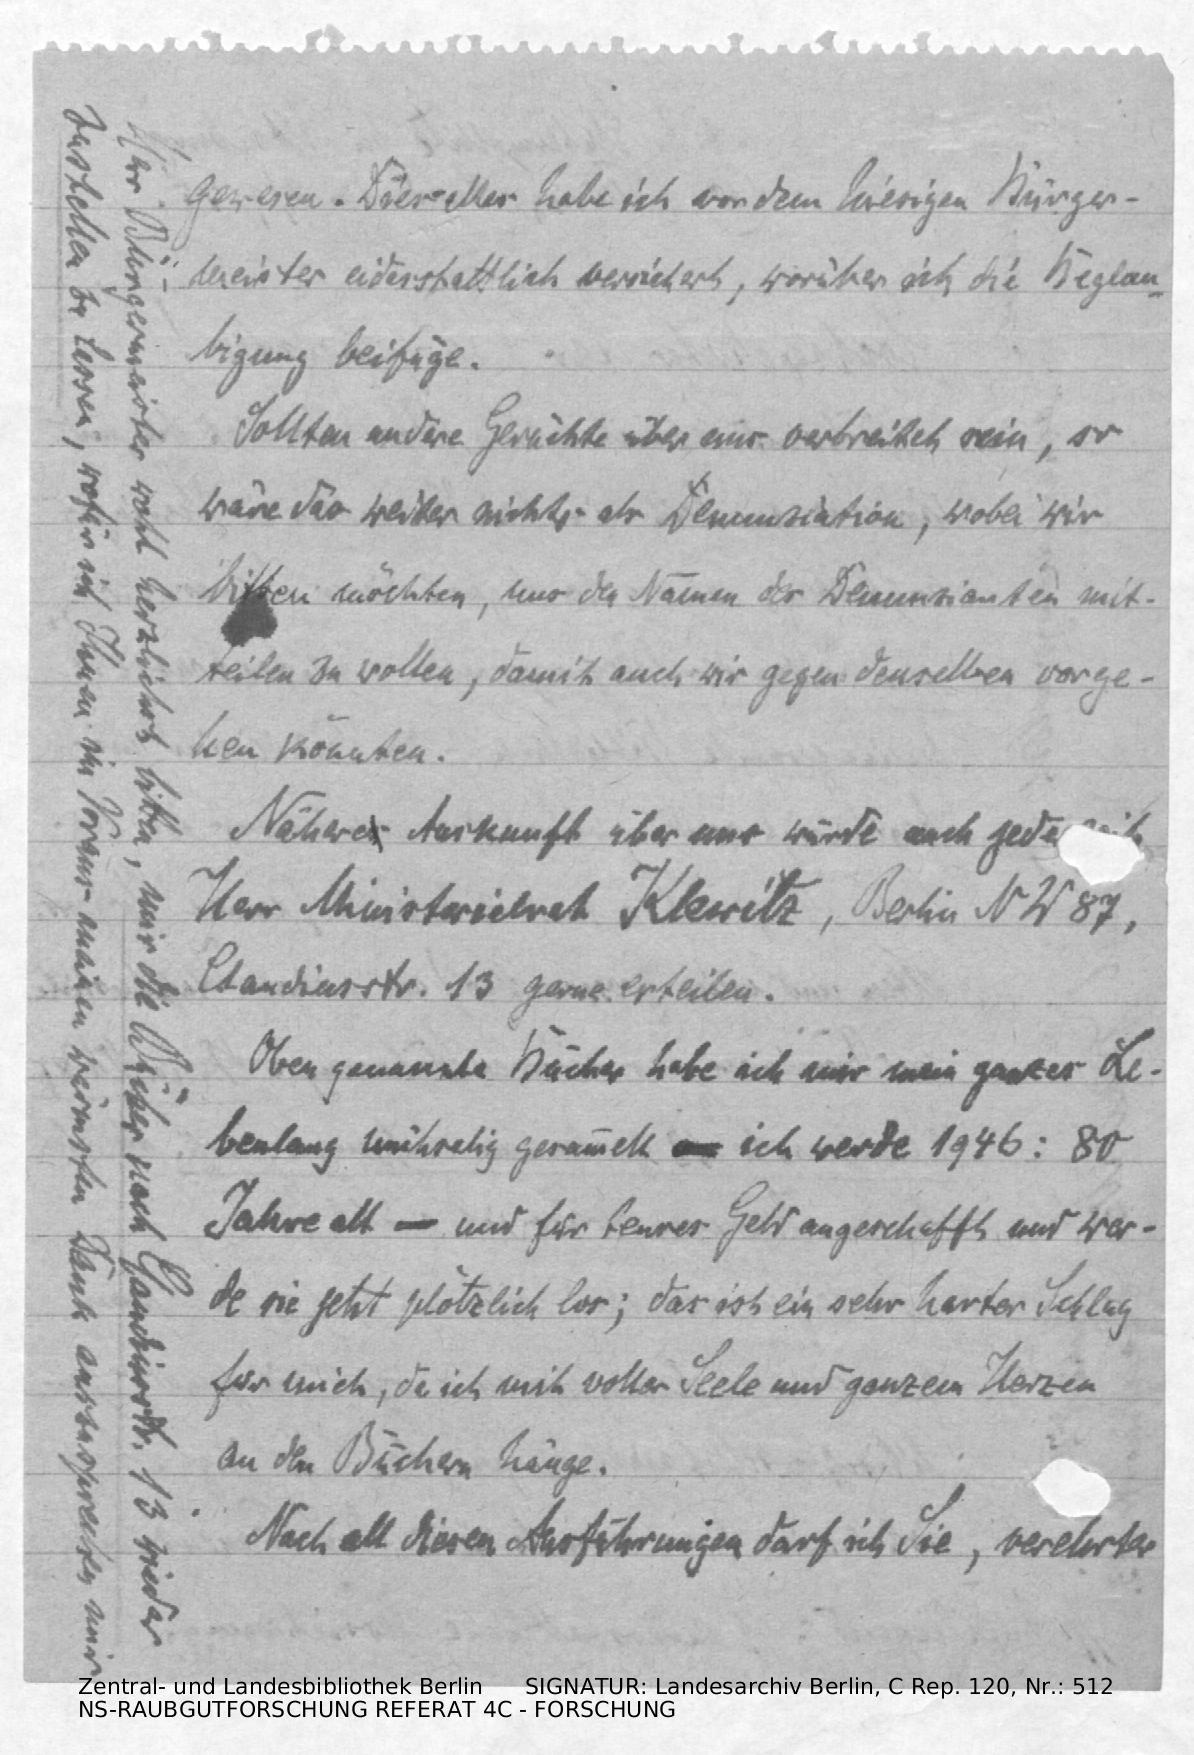 gewesen. Dies alles habe ich vor dem hiesigen Bürger-
meister eidesstattlich versichert, worüber ich die Beglau-
bigung beifüge.
Sollten andere Gerüchte über uns verbreitet sein, so
wäre das weiter nichts als Denunziation, wobei wir
bitten möchten, uns den Namen des Denunzianten mit-
teilen zu wollen, damit auch wir gegen denselben vorge-
hen könnten.
Nähere Auskunft über uns würde auch jederzeit
Herr Ministerialrat Klewitz, Berlin NW 87,
Claudiusstr. 13 gerne erteilen.
Oben genannte Bücher habe ich mir mein ganzes Le-
benlang mühselig gesam̅elt — ich werde 1946: 80
Jahre alt — und für teures Geld angeschafft und wer-
de sie jetzt plötzlich los; das ist ein sehr harter Schlag
für mich, da ich mit voller Seele und ganzem Herzen
an den Büchern hänge.
Nach all diesen Ausführungen darf ich Sie, verehrter
Herr Bürgermeister wohl herzlichst bitten, mir die Bücher nach Claudiusstr. 13 wieder
zustellen zu lassen, wofür ich Ihnen im Voraus meinen wärmsten Dank auszusprechen mir
Zentral- und Landesbibliothek Berlin SIGNATUR: Landesarchiv Berlin, C Rep. 120, Nr.: 512
NS-RAUBGUTFORSCHUNG REFERAT 4C - FORSCHUNG